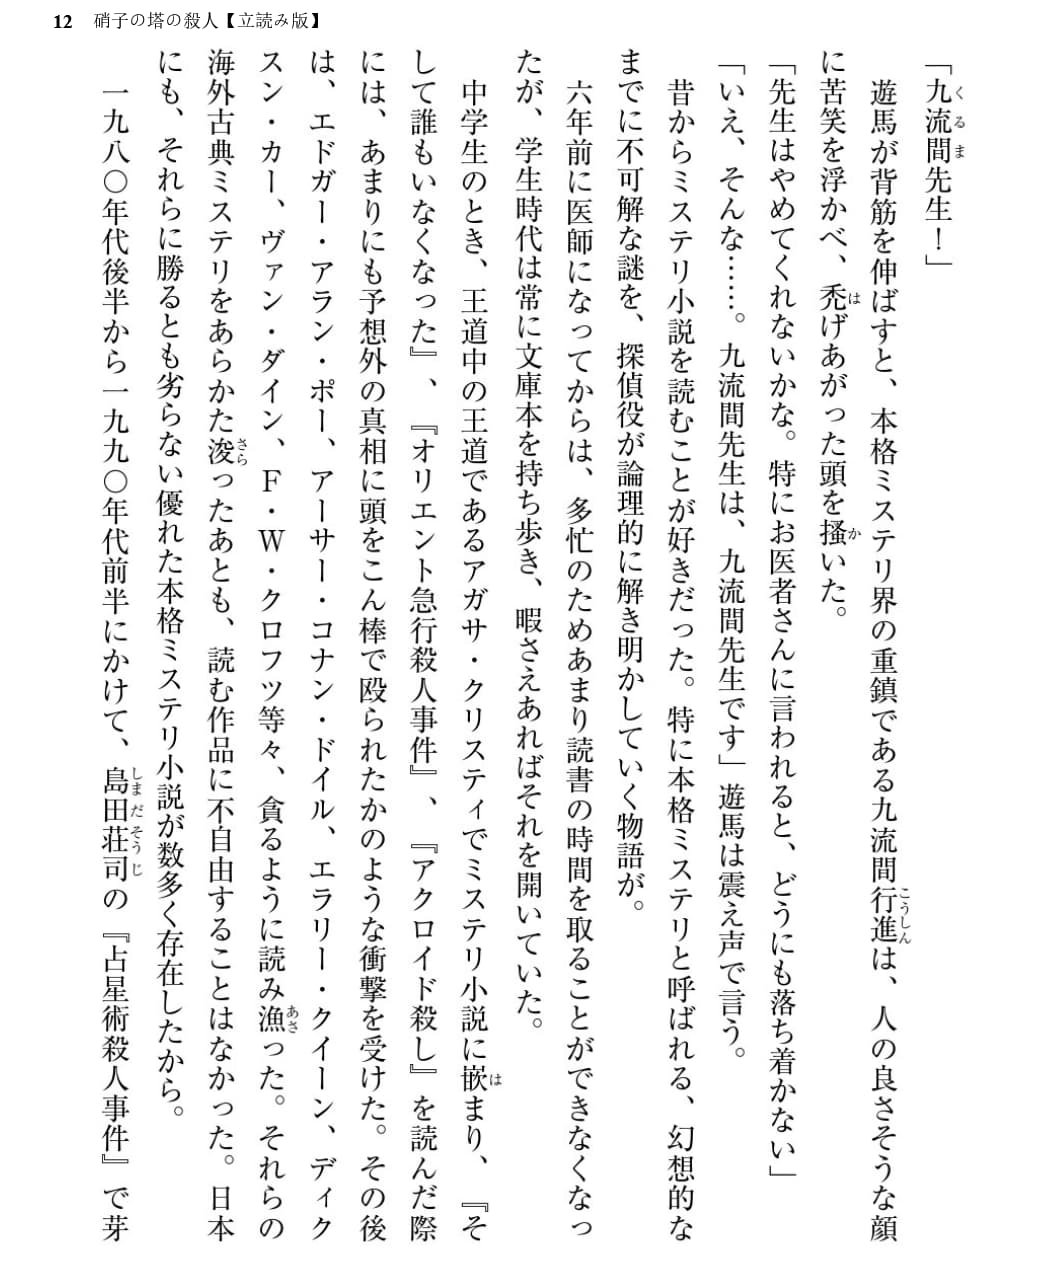 12 硝子の塔の殺人【立読み版】
「九流間先生！」
遊馬が背筋を伸ばすと、本格ミステリ界の重鎮である九流間行進は、人の良さそうな顔
に苦笑を浮かべ、禿げあがった頭を掻いた。
「先生はやめてくれないかな。特にお医者さんに言われると、どうにも落ち着かない」
「いえ、そんな……。九流間先生は、九流間先生です」遊馬は震え声で言う。
昔からミステリ小説を読むことが好きだった。特に本格ミステリと呼ばれる、幻想的な
までに不可解な謎を、探偵役が論理的に解き明かしていく物語が。
六年前に医師になってからは、多忙のためあまり読書の時間を取ることができなくなっ
たが、学生時代は常に文庫本を持ち歩き、暇さえあればそれを開いていた。
中学生のとき、王道中の王道であるアガサ・クリスティでミステリ小説に嵌まり、『そ
して誰もいなくなった』、『オリエント急行殺人事件』、『アクロイド殺し』を読んだ際
には、あまりにも予想外の真相に頭をこん棒で殴られたかのような衝撃を受けた。その後
は、エドガー・アラン・ポー、アーサー・コナン・ドイル、エラリー・クイーン、ディク
スン・カー、ヴァン・ダイン、Ｆ・Ｗ・クロフツ等々、貪るように読み漁った。それらの
海外古典ミステリをあらかた浚ったあとも、読む作品に不自由することはなかった。日本
にも、それらに勝るとも劣らない優れた本格ミステリ小説が数多く存在したから。
一九八〇年代後半から一九九〇年代前半にかけて、島田荘司の『占星術殺人事件』で芽